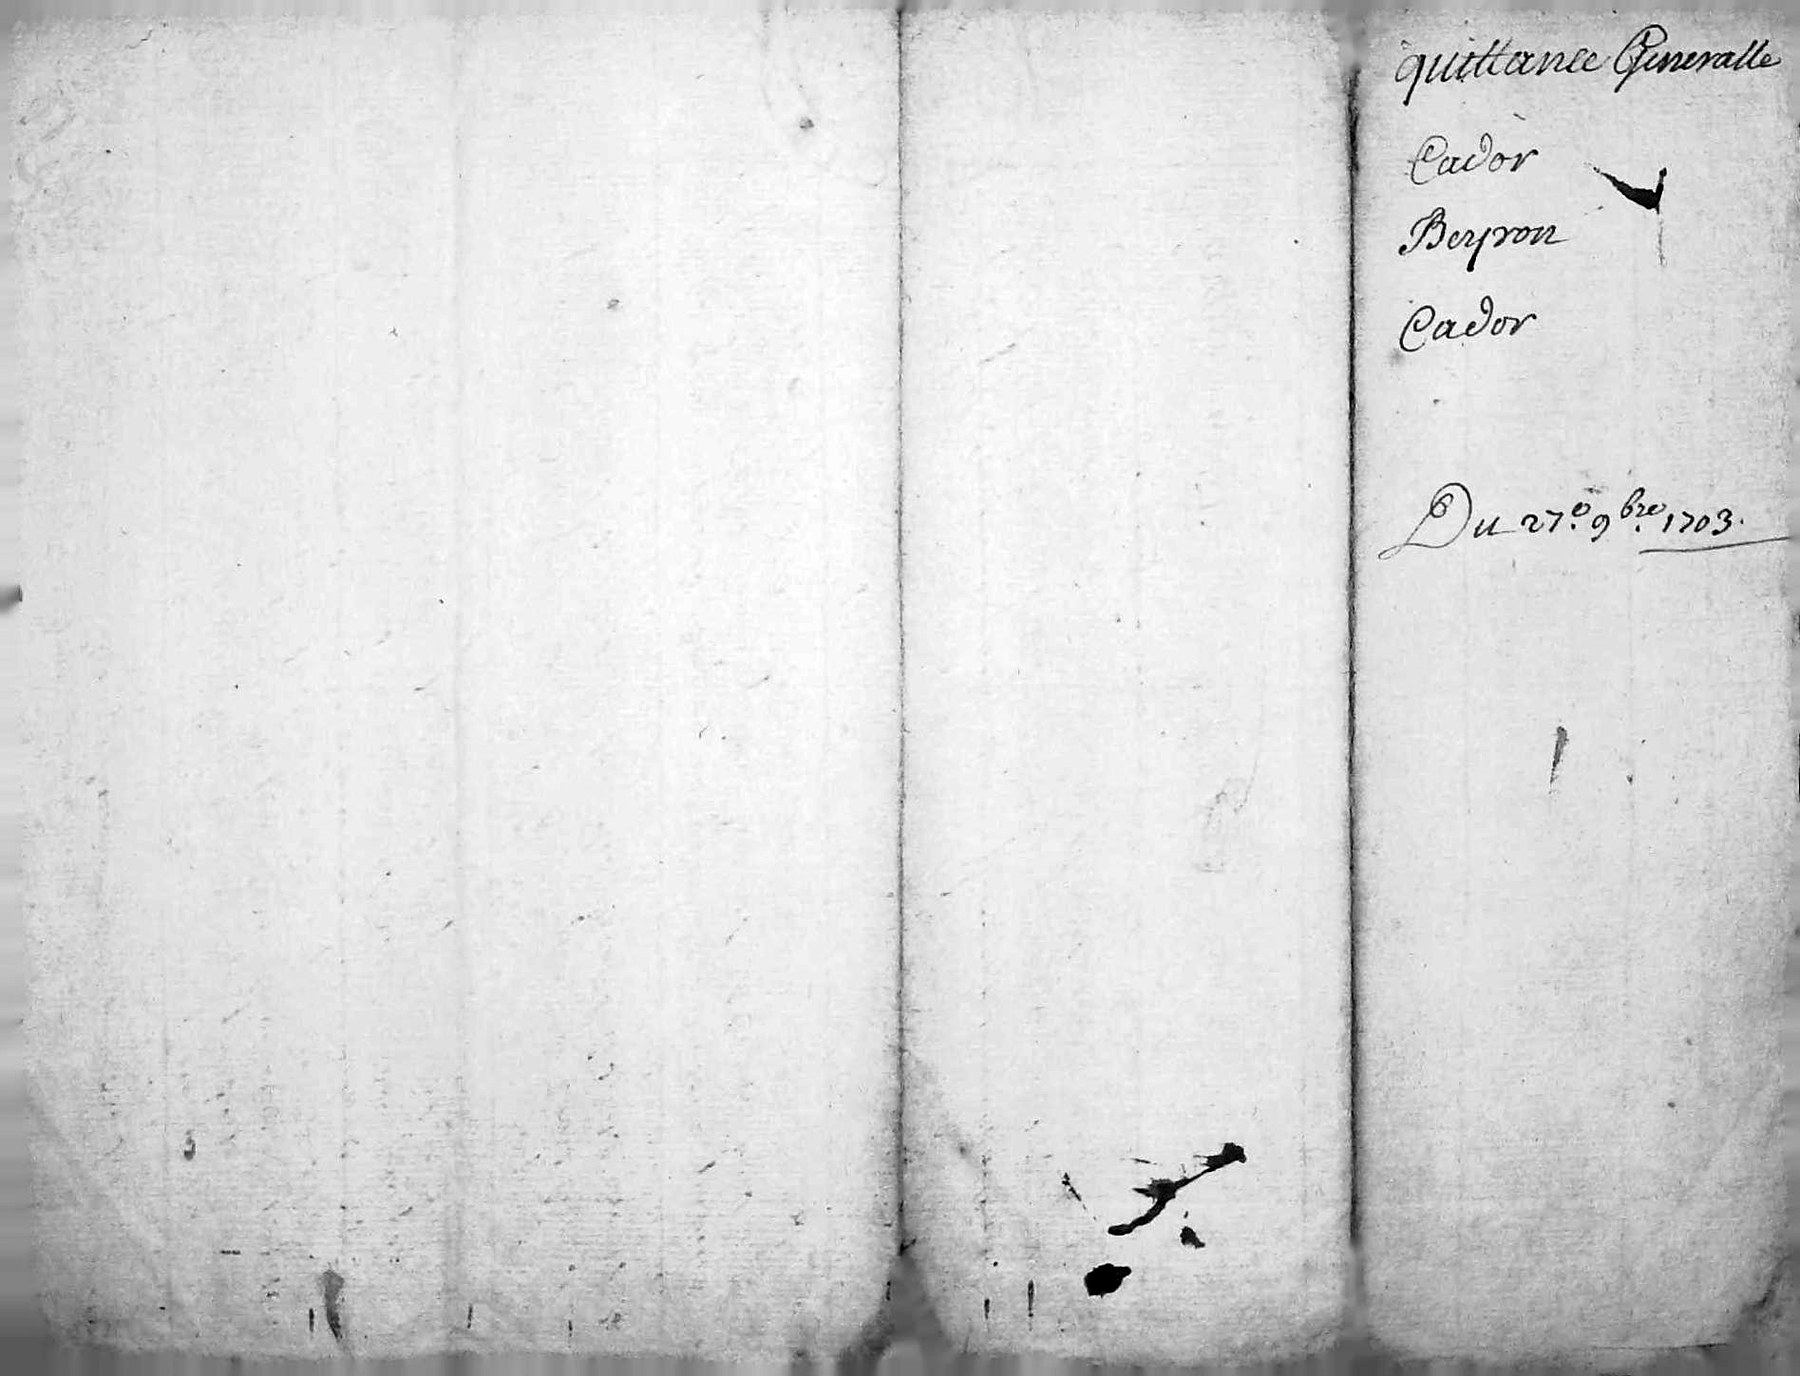 quittance Generalle
Cador
Beyron
Cador
Du 27e 9bre 1703.